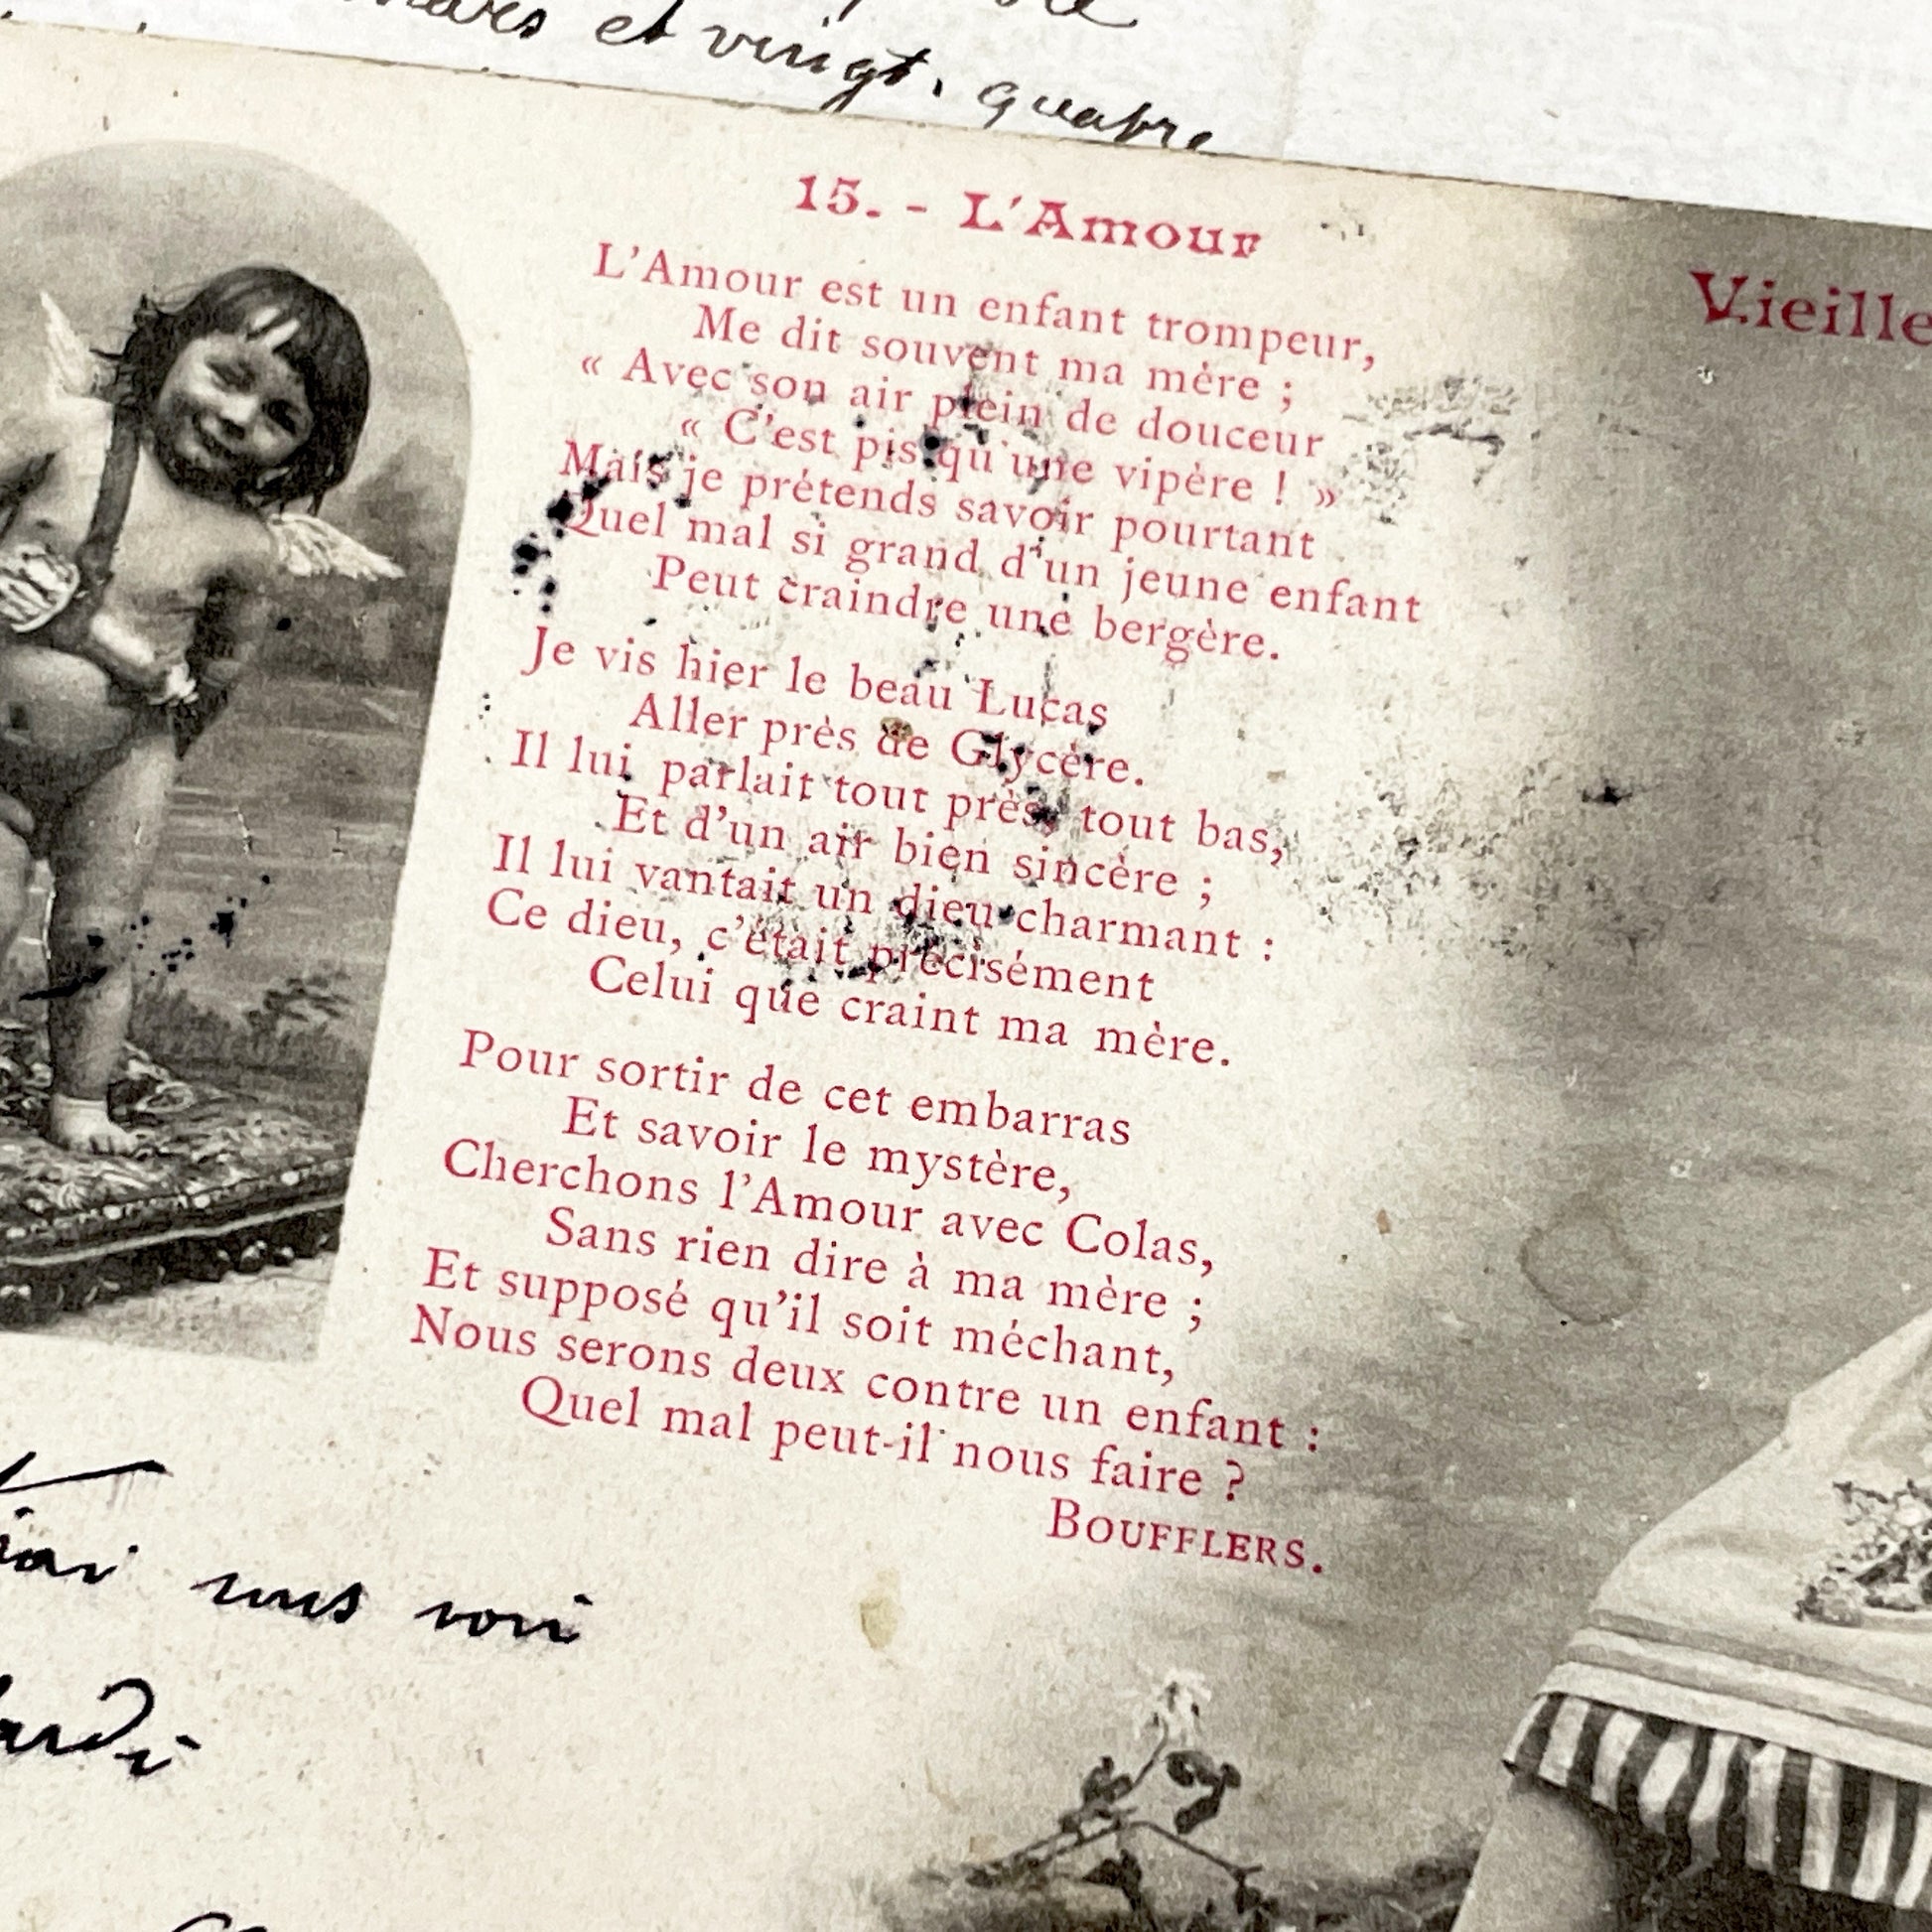 et vingt. quatre
15. - L'Amour
Vieille
L'Amour est un enfant trompeur,
Me dit souvent ma mère ;
« Avec son air plein de douceur
« C'est pis qu'une vipère ! »
Mais je prétends savoir pourtant
Quel mal si grand d'un jeune enfant
Peut craindre une bergère.
Je vis hier le beau Lucas
Aller près de Glycère.
Il lui parlait tout près, tout bas,
Et d'un air bien sincère ;
Il lui vantait un dieu charmant :
Ce dieu, c'était précisément
Celui que craint ma mère.
Pour sortir de cet embarras
Et savoir le mystère,
Cherchons l'Amour avec Colas,
Sans rien dire à ma mère ;
Et supposé qu'il soit méchant,
Nous serons deux contre un enfant :
Quel mal peut-il nous faire ?
BOUFFLERS.